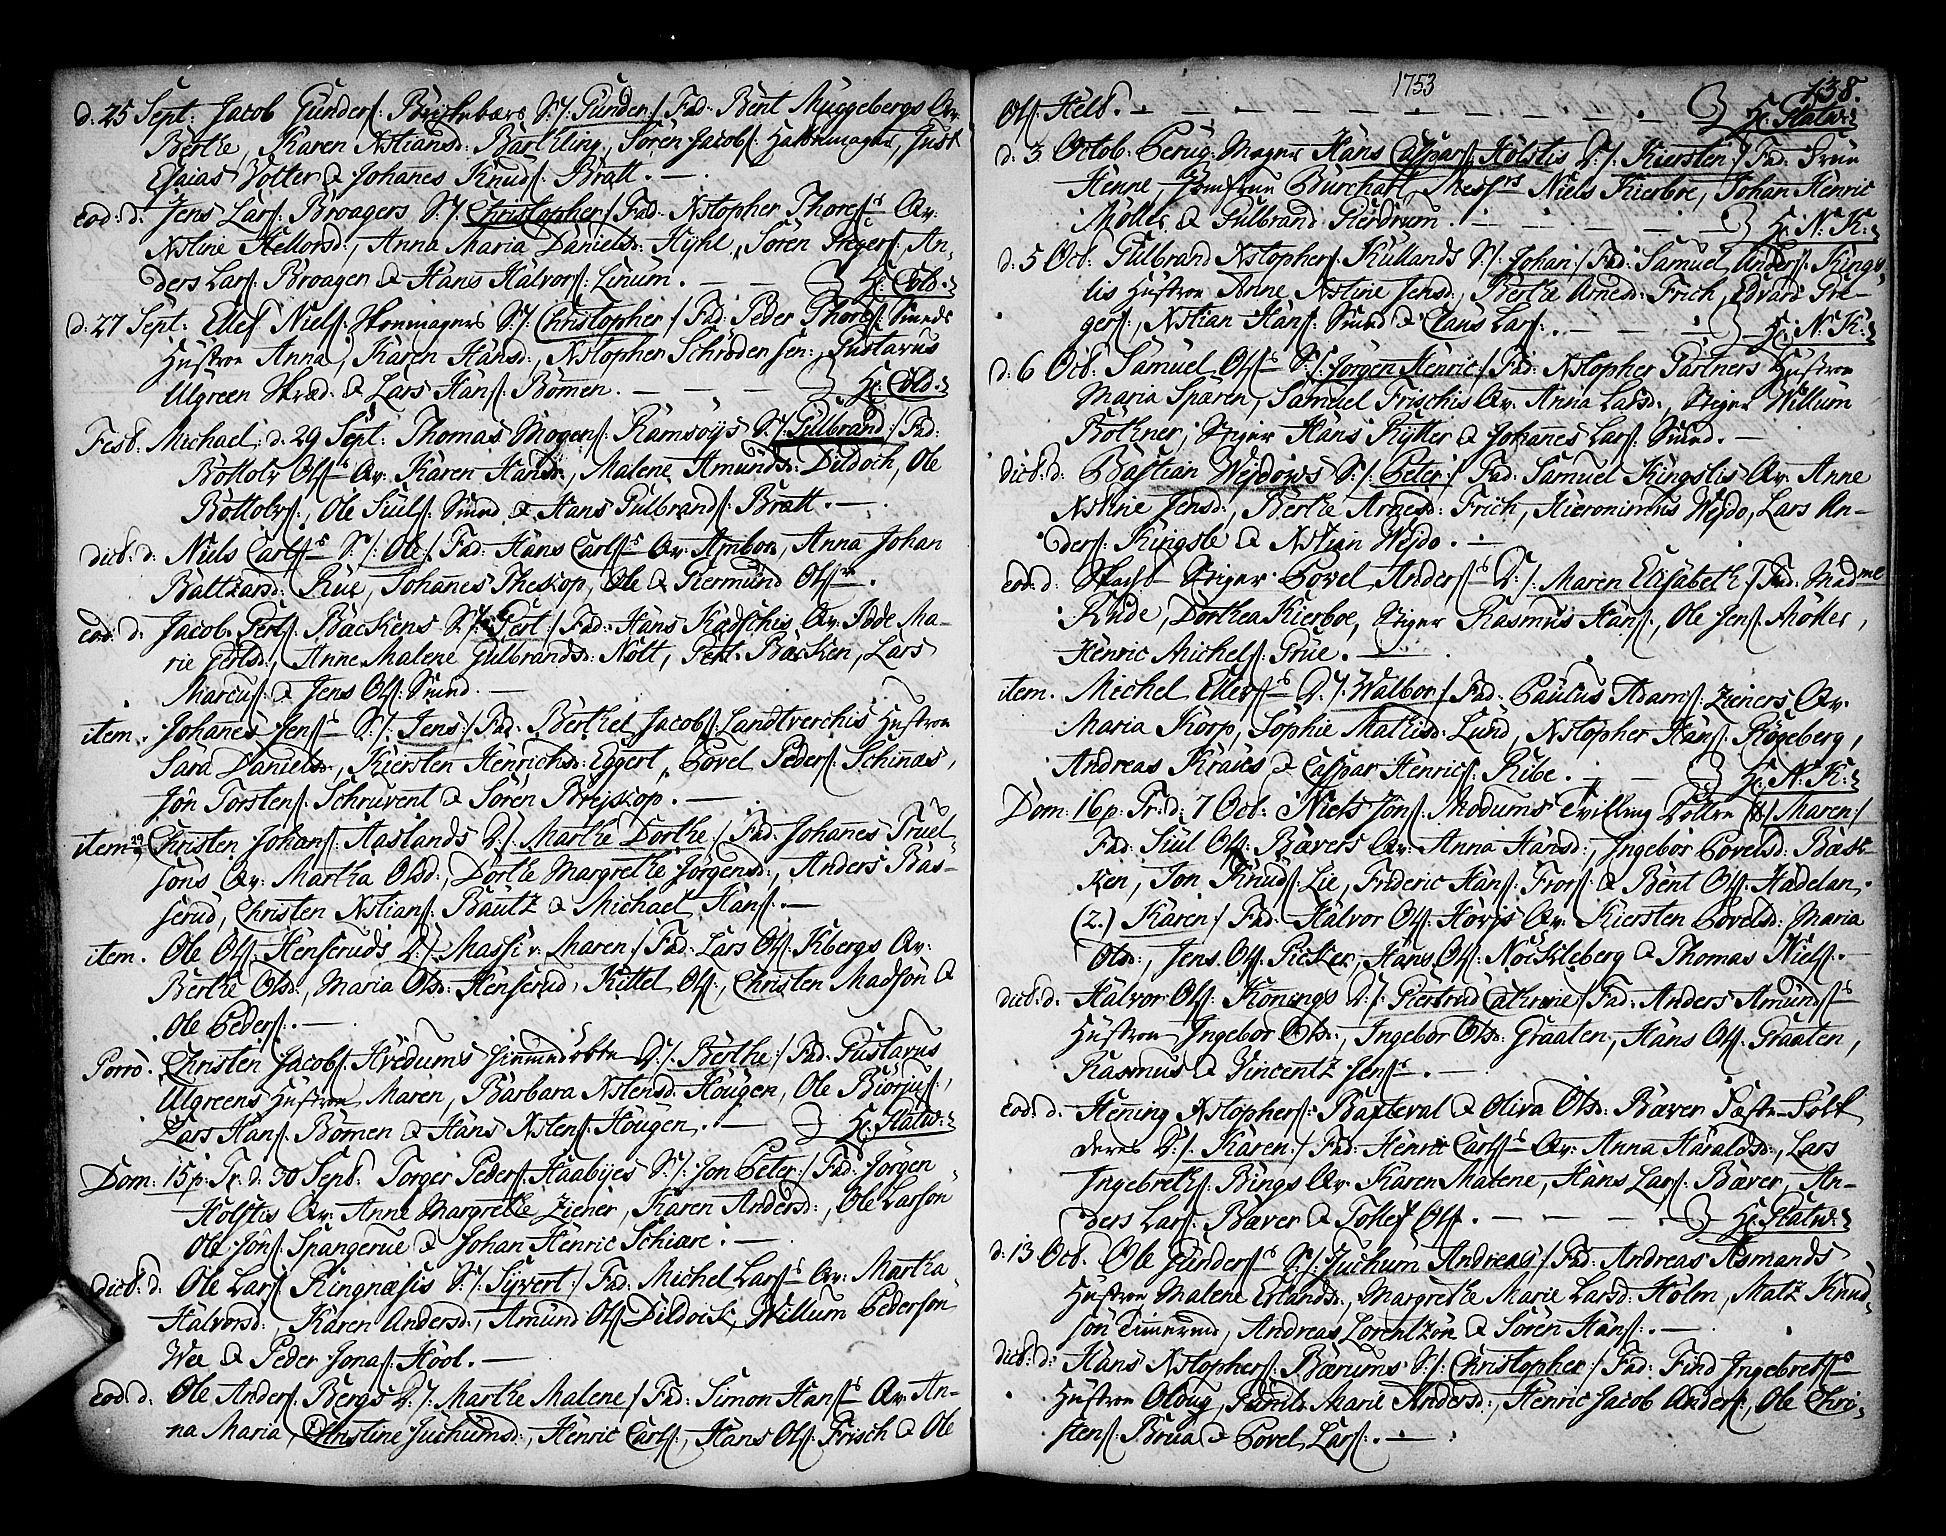 d: 25 Sept: Jacob Gunders: S:/: Gunder:/ Fad: Bent Muggebergs Qv:
Berthe, Karen Xstiansd: Bartling, Sören Jacobs: Hattemager, Just
Esaias Wolter & Johanes Knuds: Bratt.
eod: d: Jens Lars: Broagers S:/: Christopher:/ Fad: Xstopher Thores:s Qv:
Xstine Hellorsd:, Anna Maria Danielsd: Kyhl, Sören Ingers:, An-
ders Lars: Broager & Hans Halvors: Linum. H: Cold:
d: 27 Sept: Ellef Niels: S:/: Christopher:/ Fad: Peder Thores: Smeds
Hustroe Anna, Karen Hansd:, Xstopher Schröder Sen:, Gustavus
Ulgreen Skræd: & Lars Hans: Bömen. H: Cold:
Fest: Michael: d: 29 Sept: Thomas Mogens: Ramsöys S:/: Gulbrand:/ Fad:
Bottolv Ols:s Qv: Karen Hansd:, Malene Amundsd: Dildoch, Ole
Bottolvs:, Ole Siuls: Smed & Hans Gulbrands: Bratt.
dict: d: Niels Carls:s S:/: Ole:/ Fad: Hans Carls:s Qv: Ambor, Anna Johan
Baltzard: Rue, Johanes Theskop, Ole & Giermund Ols:
eod: d: Jacob Gerts: Backens S:/: Gert:/ Fad: Hans Kadschis Qv: Iode Ma-
rie Gertsd:, Anne Malene Gulbrandsd: Nolt, Gert Backen, Lars
Marcus: & Jens Ols: Smed.
item. Johanes Jens:s S:/: Jens:/ Fad: Berthel Jacobs: Landtverchis Hustroe
Sara Danielsd:, Kiersten Henrichsd: Eggert, Povel Peders: Schinnes,
Jön Torstens: Schruvent & Sören Brejskop.
item Christen Johans: Aaslands D:/: Marthe Dorthe:/ Fad: Johanes Truel-
söns Qv: Martha Olsd:, Dorthe Margrethe Jörgensd:, Anders Bas-
serud, Christen Xstians: Bautz & Michael Hans:
item. Ole Ols: Henseruds D:/: Massi v: Maren:/ Fad: Lars Ols: Kbergs Qv:
Berthe Olsd:, Maria Olsd: Henserud, Kittel Ols:, Christen Madsön &
Ole Peders:
Porrò. Christen Jacobs: Hvedums D:/: Berthe:/ Fad: Gustavus
Ulgreens Hustroe Maren, Barbara Xstensd: Höugen, Ole Biörnes:,
Lars Hans: Bömen & Hans Xstens: Höugen. H: Statw:
Dom: 15 p: Tr: d: 30 Sept: Torger Peders: Haabyes S:/: Jon Peter:/ Fad: Jörgen
Holstis Qv: Anne Margrethe Ziener, Karen Andersd:, Ole Larsön
Ole Jöns: Spangerue & Johan Henric Schiære.
dict: d: Ole Lars: Ringnæsis S:/: Syvert:/ Fad: Michel Lars:s Qv: Martha
Halvorsd:, Karen Andersd:, Amund Ols: Dildock, Willum Pedersön
Wee & Peder Jonas: Hool.
eod: d: Ole Anders: Bergs D:/: Marthe Malene:/ Fad: Simon Hans:s Qv: An-
na Maria, Christine Juchumsd:, Henric Carls:, Hans Ols: Frisch & Ole
1753
138.
Ols: Helt. H: Statw:
d: 3 Octob: Perug: Mager Hans Caspars: Holstis D:/: Kiersten:/ Fad: Frue
Henne, Jomfrue Burchaft, Mess:rs Niels Kierbre, Johan Henric
Möller & Gulbrand Gierdrum. H: N: K:
d: 5 Oct: Gulbrand Xstophers: Kullands S:/: Johan:/ Fad: Samuel Anders: Kings-
lis Hustroe Anne Xstine Jensd:, Berthe Arnesd: Frich, Edvard Gre-
gers:, Xstian Hans: Smed & Claus Lars:. H: N: K:
d: 6 Oct: Samuel Ols:s S:/: Jörgen Henric:/ Fad: Xstopher Gartners Hustroe
Maria Sparen, Samuel Frischis Qv: Anna Larsd:, Stiger Willum
Bötkner, Stiger Hans Rytter & Johanes Lars: Smed.
dict: d: Bastian Weydows S:/: Peter:/ Fad: Samuel Kingslis Qv: Anne
Xstine Jensd:, Berthe Arnesd: Frich, Hieronimus Weydo, Lars An-
ders: Kingsle & Xstian Weydo.
eod: d: Stiger Povel Anders:s D:/: Maren Elisabeth:/ Fad: Mad:me
Rude, Dorthea Kierboe, Stiger Rasmus Hans:, Ole Jens: Möller,
Henric Michels: Grüe.
item. Michel Ellefs:s D:/: Walbor:/ Fad: Paulus Adams: Zieners Qv:
Maria Korp, Sophie Mathisd: Lund, Xstopher Hans: Kogeberg,
Andreas Kraies & Caspar Henrics: Ribe. H: N: K:
Dom: 16 p: Tr: d: 7 Oct: Niels Jöns: Modums Tvilling Döttre (1) Maren:/
Fad: Siul Ols: Bævers Qv: Anna Hansd:, Ingebor Povelsd: Bæk-
ken, Jon Knuds: Lie, Frideric Hans: Frors: & Bent Ols: Hadelan.
(2.) Karen:/ Fad: Halvor Ols: Hovis Qv: Kiersten Povelsd: Maria
Olsd:, Jens Ols: Picker, Hans Ols: Nöckleberg & Thomas Niels:
dict: d: Halvor Ols: Konings D:/: Giertrud Cathrine:/ Fad: Anders Amunds:s
Hustroe Ingebor Olsd:, Ingebor Olsd: Graaten, Hans Ols: Graaten,
Rasmus & Vincentz Jens:s.
eod: d: Hening Xstophers: Baxteval & Oliva Olsd: Bæver
D:/: Karen:/ Fad: Henric Carls:s Qv: Anna Haraldsd:, Lars
Ingebreths: Bings Qv: Karen Malene, Hans Lars: Bæver, An-
ders Lars: Bæver & Tollef Ols:. H: Statw:
d: 13 Oct: Ole Gunders:s S:/: Juchum Andreas:/ Fad: Andreas Asmands
Hustroe Malene Erlandsd:, Margrethe Marie Larsd: Holm, Matz Knud-
sön, Andreas Lorentzön & Sören Hans:
dict: d: Hans Xstophers: Bærums S:/: Christopher:/ Fad: Find Ingebrets:s
Hustroe Oloug, Marie Andersd:, Henric Jacob Anders:, Ole Chri-
stens: Brua & Povel Lars: